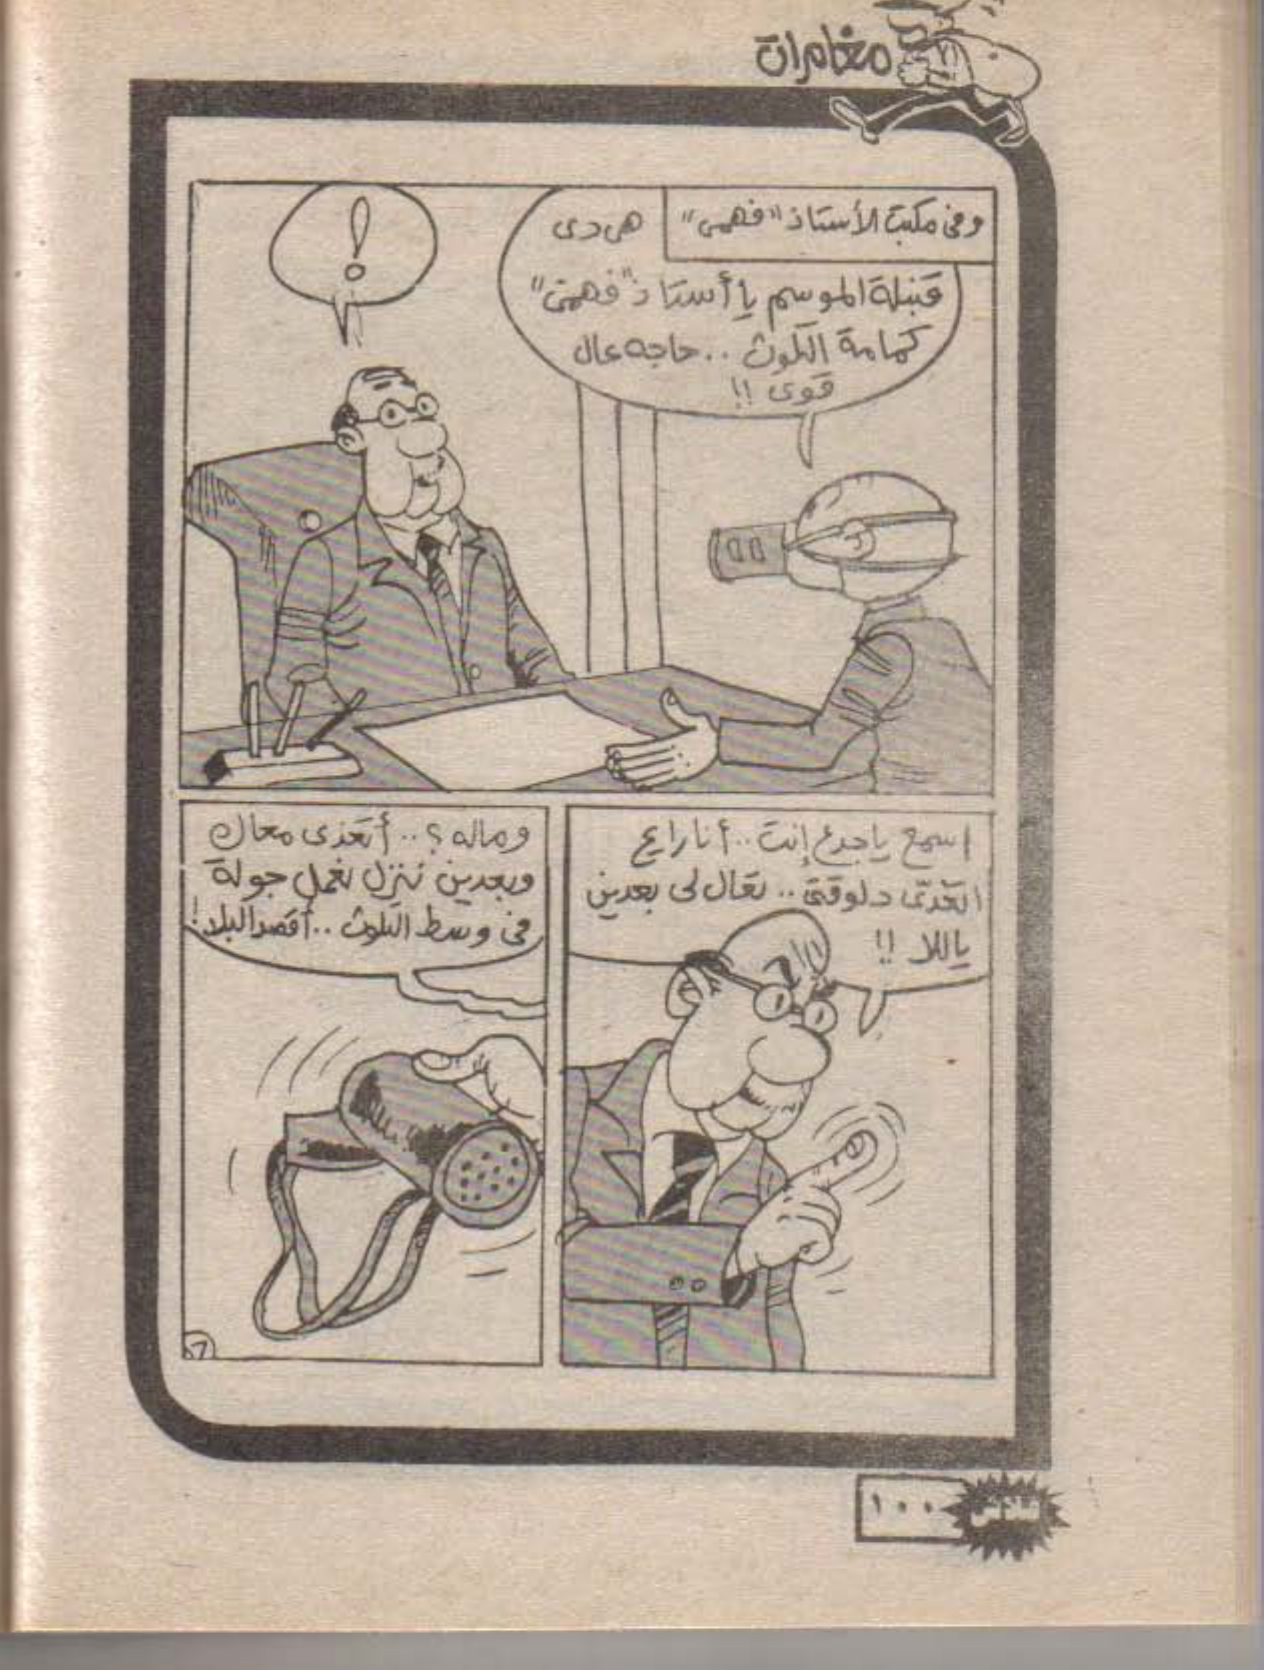 مغامرات
وفى مكتب الأستاذ "فهمى"
هى دى
قنبلة الموسم يا أستاذ "فهمى"
كمامة التلوث .. حاجه عال
قوى !!
!
اسمع يا جدع إنت .. أنا رايح
اتغدى دلوقتى .. تعال لى بعدين
ياللا !!
وماله ؟ .. أتغدى معاك
وبعدين ننزل نعمل جولة
فى وسط التلوث .. أقصد البلد !
٦
فلاش
١٠٠